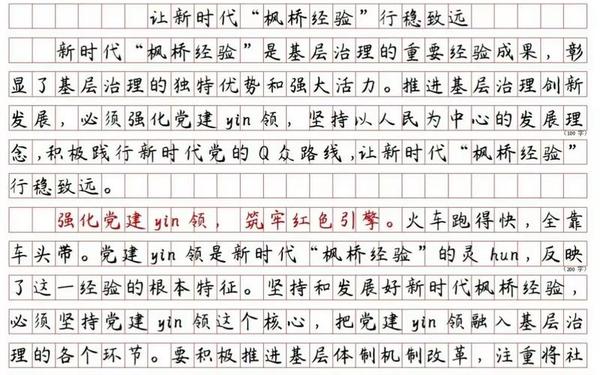 让新时代“枫桥经验”行稳致远
新时代“枫桥经验”是基层治理的重要经验成果，彰
显了基层治理的独特优势和强大活力。推进基层治理创新
发展，必须强化党建yin领，坚持以人民为中心的发展理
(100字)
念,积极践行新时代党的Q众路线,让新时代“枫桥经验”
行稳致远。
强化党建yin领，筑牢红色引擎。火车跑得快，全靠
车头带。党建yin领是新时代“枫桥经验”的灵hun，反映
(200字)
了这一经验的根本特征。坚持和发展好新时代枫桥经验，
必须坚持党建yin领这个核心，把党建yin领融入基层治
理的各个环节。要积极推进基层体制机制改革，注重将社